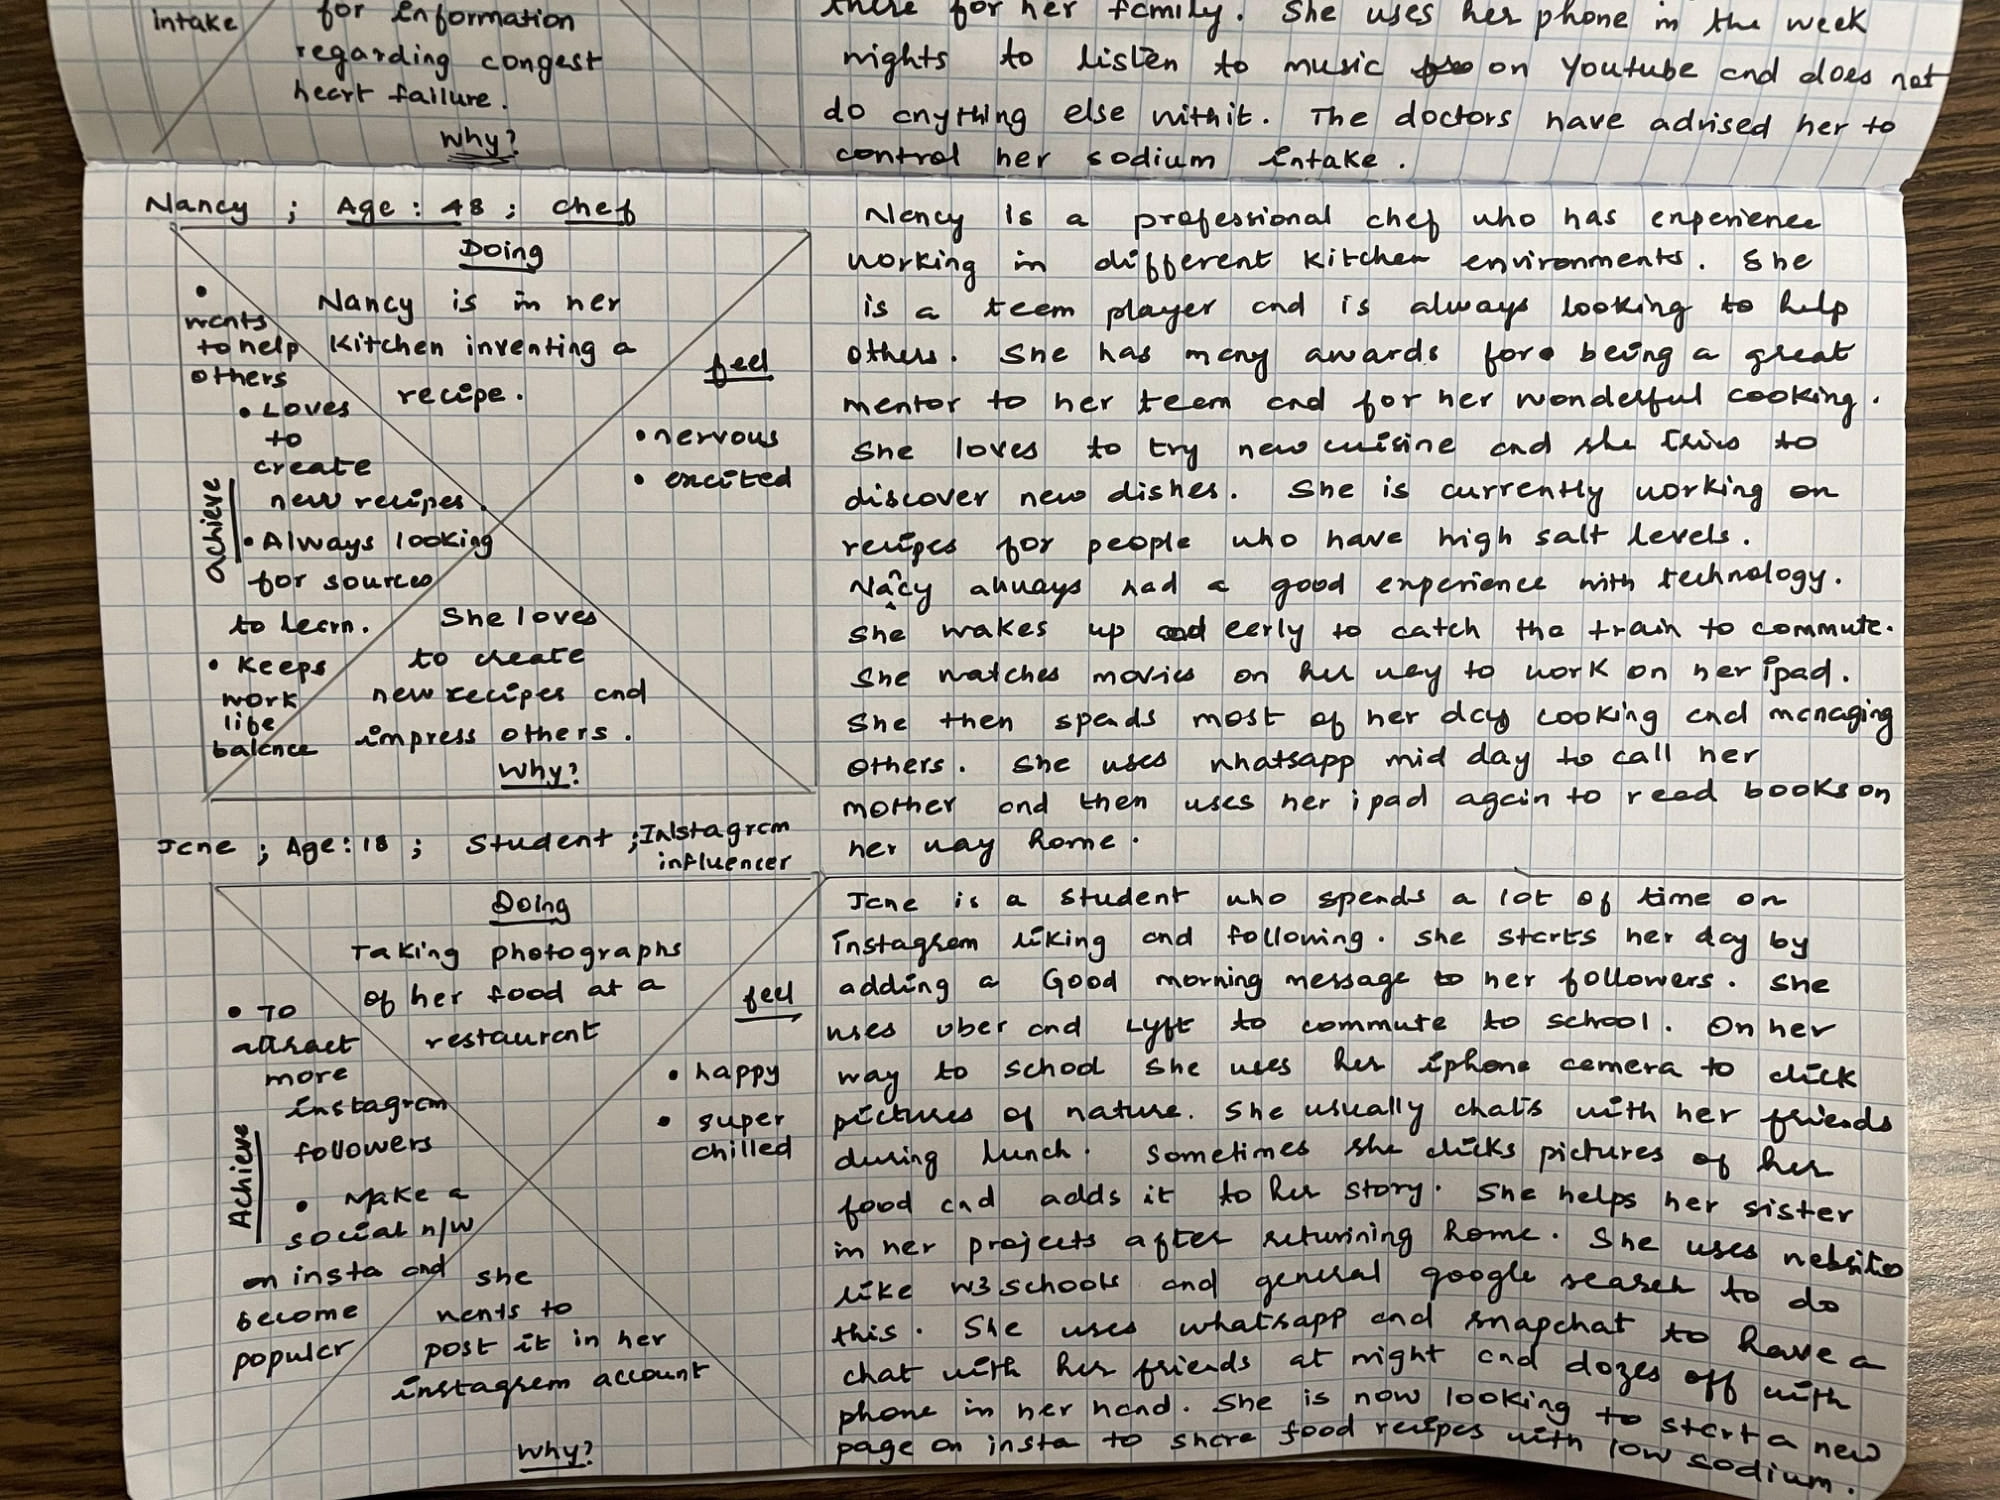 intake
for information
regarding congest
heart failure.
Why?
there for her family. She uses her phone in the week
nights to listen to music on Youtube and does not
do anything else withit. The doctors have advised her to
control her sodium intake.
Nancy ; Age : 48 ; chef
Doing
Nancy is in her
Kitchen inventing a
recipe.
• wants
to help
others
• Loves
to
create
new recipes
• Always looking
for sources
to learn.
• Keeps
work
life
balance
achieve
feel
• nervous
• excited
She loves
to create
new recipes and
impress others.
Why?
Nancy is a professional chef who has experience
working in different Kitchen environments. She
is a team player and is always looking to help
others. She has many awards for being a great
mentor to her team and for her wonderful cooking.
She loves to try new cuisine and she tries to
discover new dishes. She is currently working on
recipes for people who have high salt levels.
Nancy always had a good experience with technology.
She wakes up early to catch the train to commute.
She watches movies on her way to work on her ipad.
She then spends most of her day cooking and managing
others. She uses whatsapp mid day to call her
mother and then uses her ipad again to read books on
her way home.
Jane ; Age : 18 ; Student ; Instagram
influencer
Doing
Taking photographs
of her food at a
restaurant
• To
attract
more
instagram
followers
• Make a
social n/w
on insta and
become
popular
Achieve
feel
• happy
• super
chilled
she
wants to
post it in her
instagram account
Why?
Jane is a student who spends a lot of time on
instagram liking and following. She starts her day by
adding a Good morning message to her followers. She
uses uber and Lyft to commute to school. On her
way to school she uses her iphone camera to click
pictures of nature. She usually chats with her friends
during lunch. Sometimes she clicks pictures of her
food and adds it to her story. She helps her sister
in her projects after returining home. She uses websites
like w3schools and general google search to do
this. She uses whatsapp and snapchat to have a
chat with her friends at night and dozes off with
phone in her hand. She is now looking to start a new
page on insta to share food recipes with low sodium.